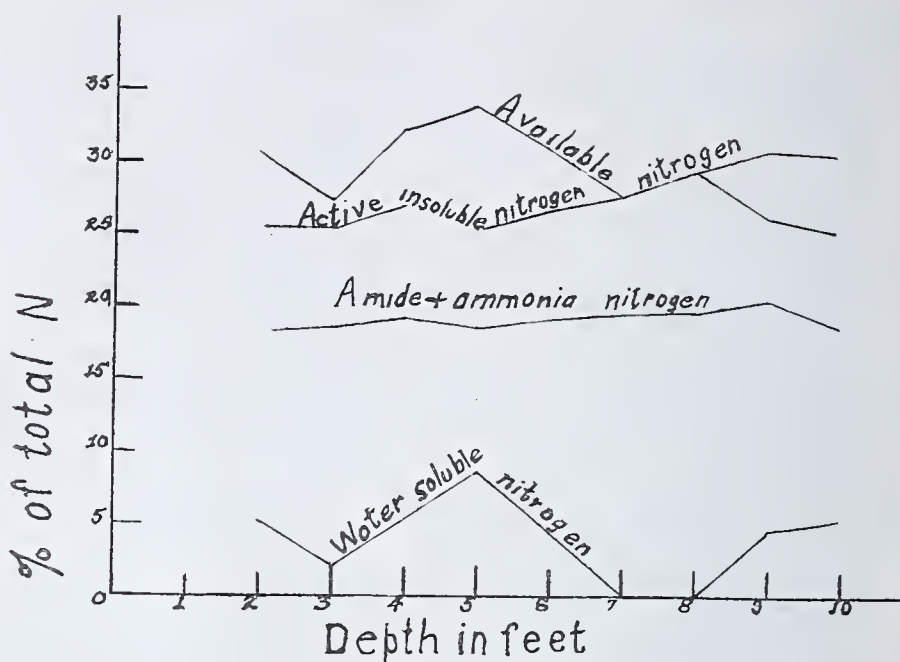 % of total N
35
30
25
20
15
10
5
0
Available nitrogen
Active insoluble nitrogen
Amide + ammonia nitrogen
Water soluble nitrogen
1 2 3 4 5 6 7 8 9 10
Depth in feet